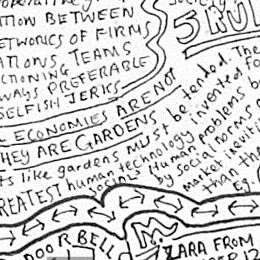 TION BETWEEN
ETWORKS OF FIRMS
ATIONS, TEAMS
CTIONING
WAYS PREFERABLE
SELFISH JERKS
5 RUL
ECONOMIES ARE NOT
HEY ARE GARDENS
ts like gardens must be tended. The
REATEST human technology invented fo
human problems b
by social norms
market
than th
DOOR BELL
ZARA FROM